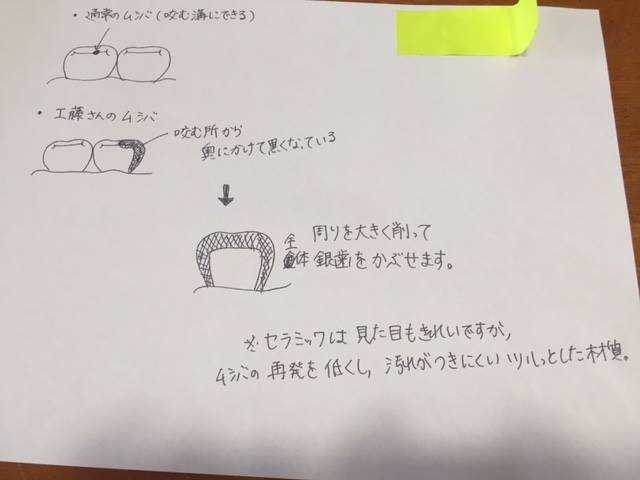 ・通常のムシバ(咬む溝にできる)
・工藤さんのムシバ
咬む所から
奥にかけて黒くなっている
周りを大きく削って
全体 銀歯をかぶせます。
※セラミックは見た目もきれいですが、
ムシバの再発を低くし、汚れがつきにくいツルっとした材質。